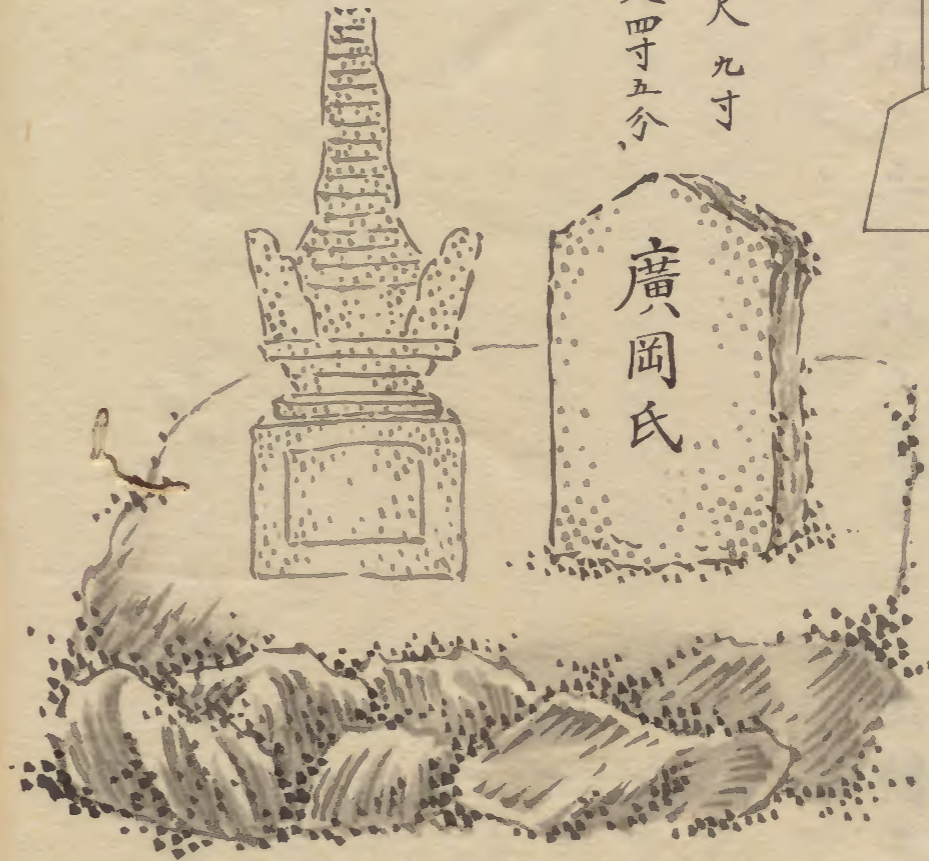 尺九寸
四寸五分
廣岡氏